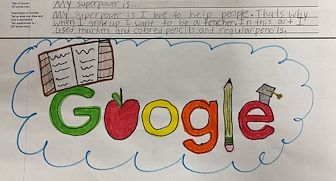 My superpower is..
My superpower is I love to help people. Thats why
when I grow up I want to be a teacher. In this art I
used markers and colored pencils and regular pencils.
Google